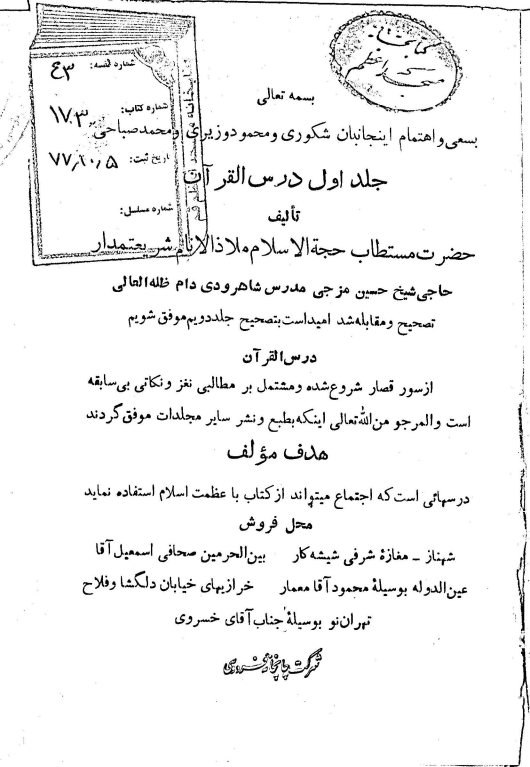 کتابخانه
مسجد اعظم
شماره قفسه: ۴۳
شماره کتاب: ۱۷۰۳
تاریخ ثبت: ۷۷،۱۰،۵
شماره مسلسل:
کتابخانه مسجد اعظم قم
بسمه تعالی
بسعی و اهتمام اینجانبان شکوری و محمود وزیری و محمد صباحی
جلد اول درس القرآن
تألیف
حضرت مستطاب حجة الاسلام ملاذ الانام شریعتمدار
حاجی شیخ حسین مزجی مدرس شاهرودی دام ظله العالی
تصحیح و مقابله شد امید است بتصحیح جلد دویم موفق شویم
درس القرآن
از سور قصار شروع شده و مشتمل بر مطالبی نغز و نکاتی بی سابقه
است و المرجو من الله تعالی اینکه بطبع و نشر سایر مجلدات موفق گردند
هدف مؤلف
درسهائی است که اجتماع میتواند از کتاب با عظمت اسلام استفاده نماید
محل فروش
شهناز ـ مغازهٔ شرفی شیشه کار بین الحرمین صحافی اسمعیل آقا
عین الدوله بوسیلهٔ محمود آقا معمار خرازیهای خیابان دلگشا و فلاح
تهران نو بوسیلهٔ جناب آقای خسروی
شرکت چاپخانه فردوسی